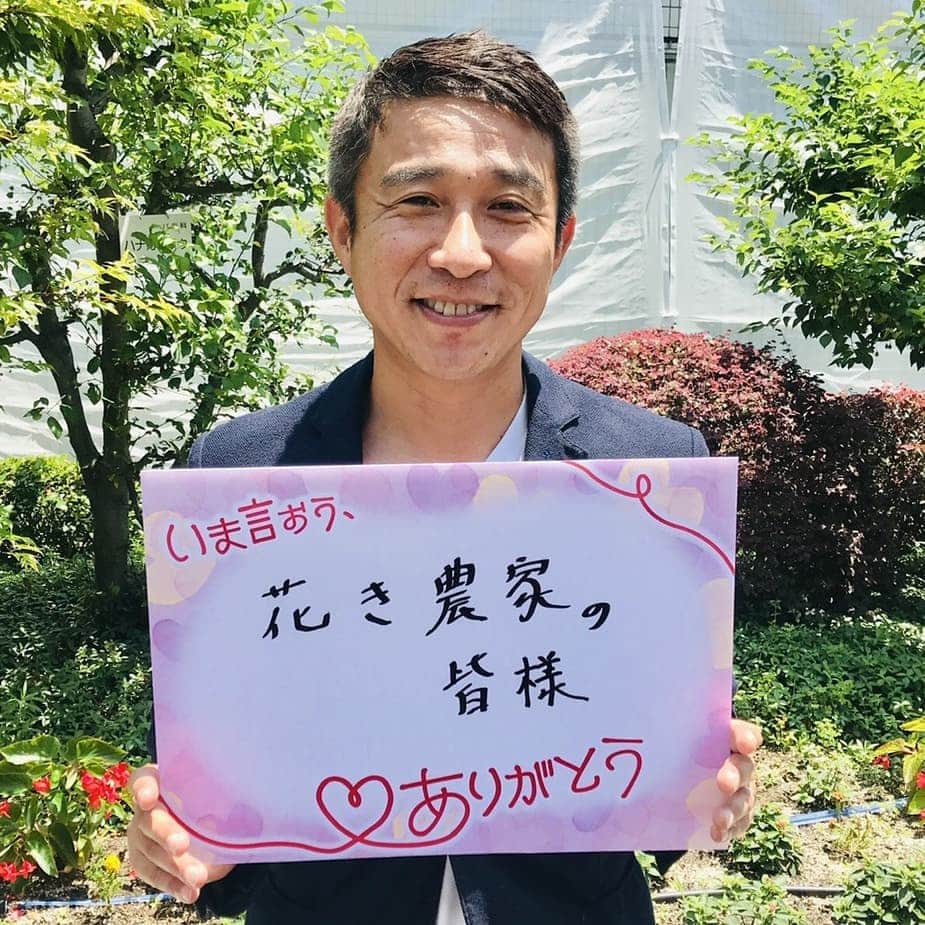 いま言おう、
花き農家の
皆様
ありがとう